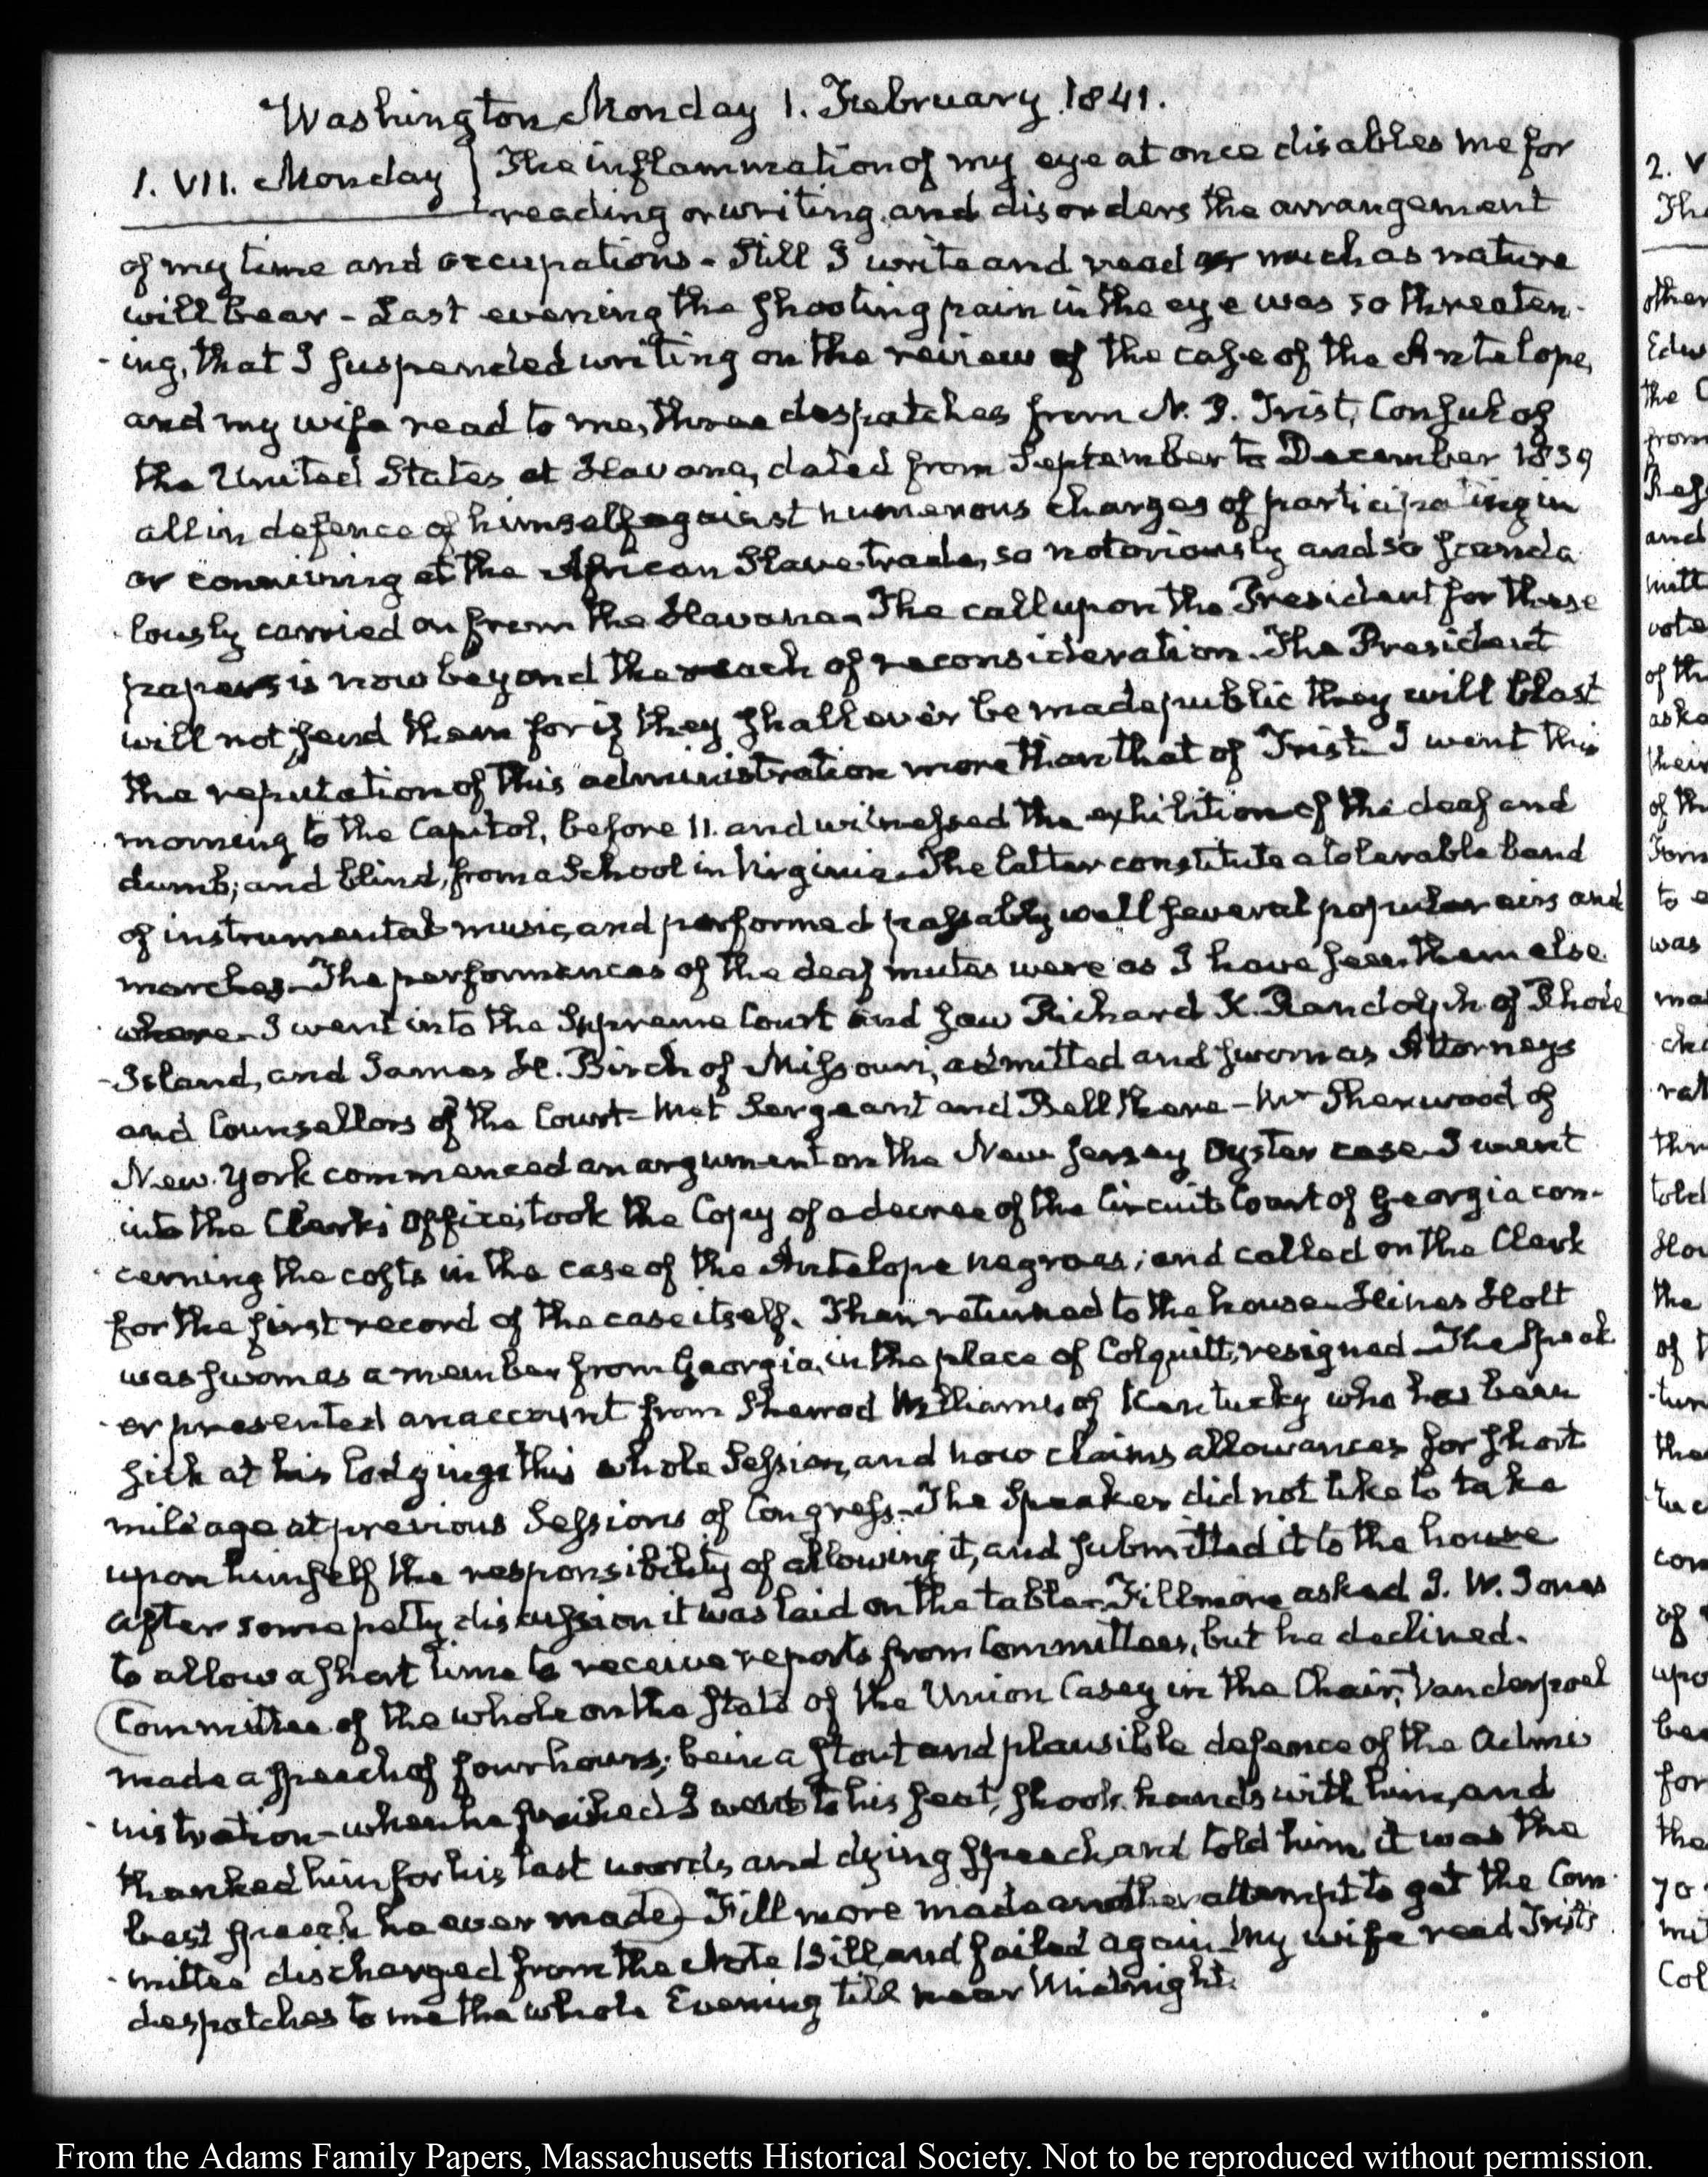 Washington Monday 1. February 1841.
1. VII. Monday } The inflammation of my eye at once disables me for
reading or writing, and disorders the arrangement
of my time and occupations - Still I write and read as much as nature
will bear - Last evening the shooting pain in the eye was so threaten-
-ing, that I suspended writing on the review of the case of the Antelope,
and my wife read to me, three despatches from N. P. Trist, Consul of
the United States at Havana, dated from September to December 1839
all in defence of himself against numerous charges of participating in
or conniving at the African Slave-trade, so notoriously and so scanda
-lously carried on from the Havana - The call upon the President for these
papers is now beyond the reach of reconsideration - The President
will not send them for if they shall ever be made public they will blast
the reputation of this administration more than that of Trist - I went this
morning to the Capitol, before 11. and witnessed the exhibition of the deaf and
dumb; and blind, from a School in Virginia - The latter constitute a tolerable band
of instrumental music, and performed passably well several popular airs and
marches - The performances of the deaf mutes were as I have seen them else
-where - I went into the Supreme Court and saw Richard K. Randolph of Rhode
-Island, and James H. Birch of Missouri, admitted and sworn as Attorneys
and Counsellors of the Court - Met Sergeant and Bell there - Mr Sherwood of
New-York commenced an argument on the New Jersey Oyster case - I went
into the Clerk's Office, took the Copy of a decree of the Circuit Court of Georgia con-
-cerning the costs in the case of the Antelope negroes; and called on the Clerk
for the first record of the case itself. Then returned to the house - Hines Holt
was sworn as a member from Georgia, in the place of Colquitt, resigned - The Speak
-er presented an account from Sherrod Williams, of Kentucky who has been
sick at his lodgings this whole Session, and now claims allowances for short
mileage at previous Sessions of Congress - The Speaker did not like to take
upon himself the responsibility of allowing it, and submitted it to the house
After some petty discussion it was laid on the table - Fillmore asked J. W. Jones
to allow a short time to receive reports from Committees, but he declined.
(Committee of the whole on the state of the Union Casey in the Chair, Vanderpoel
made a speech of four hours; being a stout and plausible defence of the Admi
-nistration - when he finished I went to his seat, shook hands with him, and
thanked him for his last words, and dying speech, and told him it was the
best speech he ever made) - Fillmore made another attempt to get the Com
-mittee discharged from the Note Bill, and failed again - My wife read Trist's
despatches to me the whole Evening till near Midnight.
2. V
The
other
Edw
the C
from
Ref
and
mitt
vote
of th
aske
their
of th
Tom
to e
was
ma
cha
rat
thr
told
Hou
the
of t
tur
the
tu c
com
of
upo
bee
for
the
yo
mit
Col
From the Adams Family Papers, Massachusetts Historical Society. Not to be reproduced without permission.